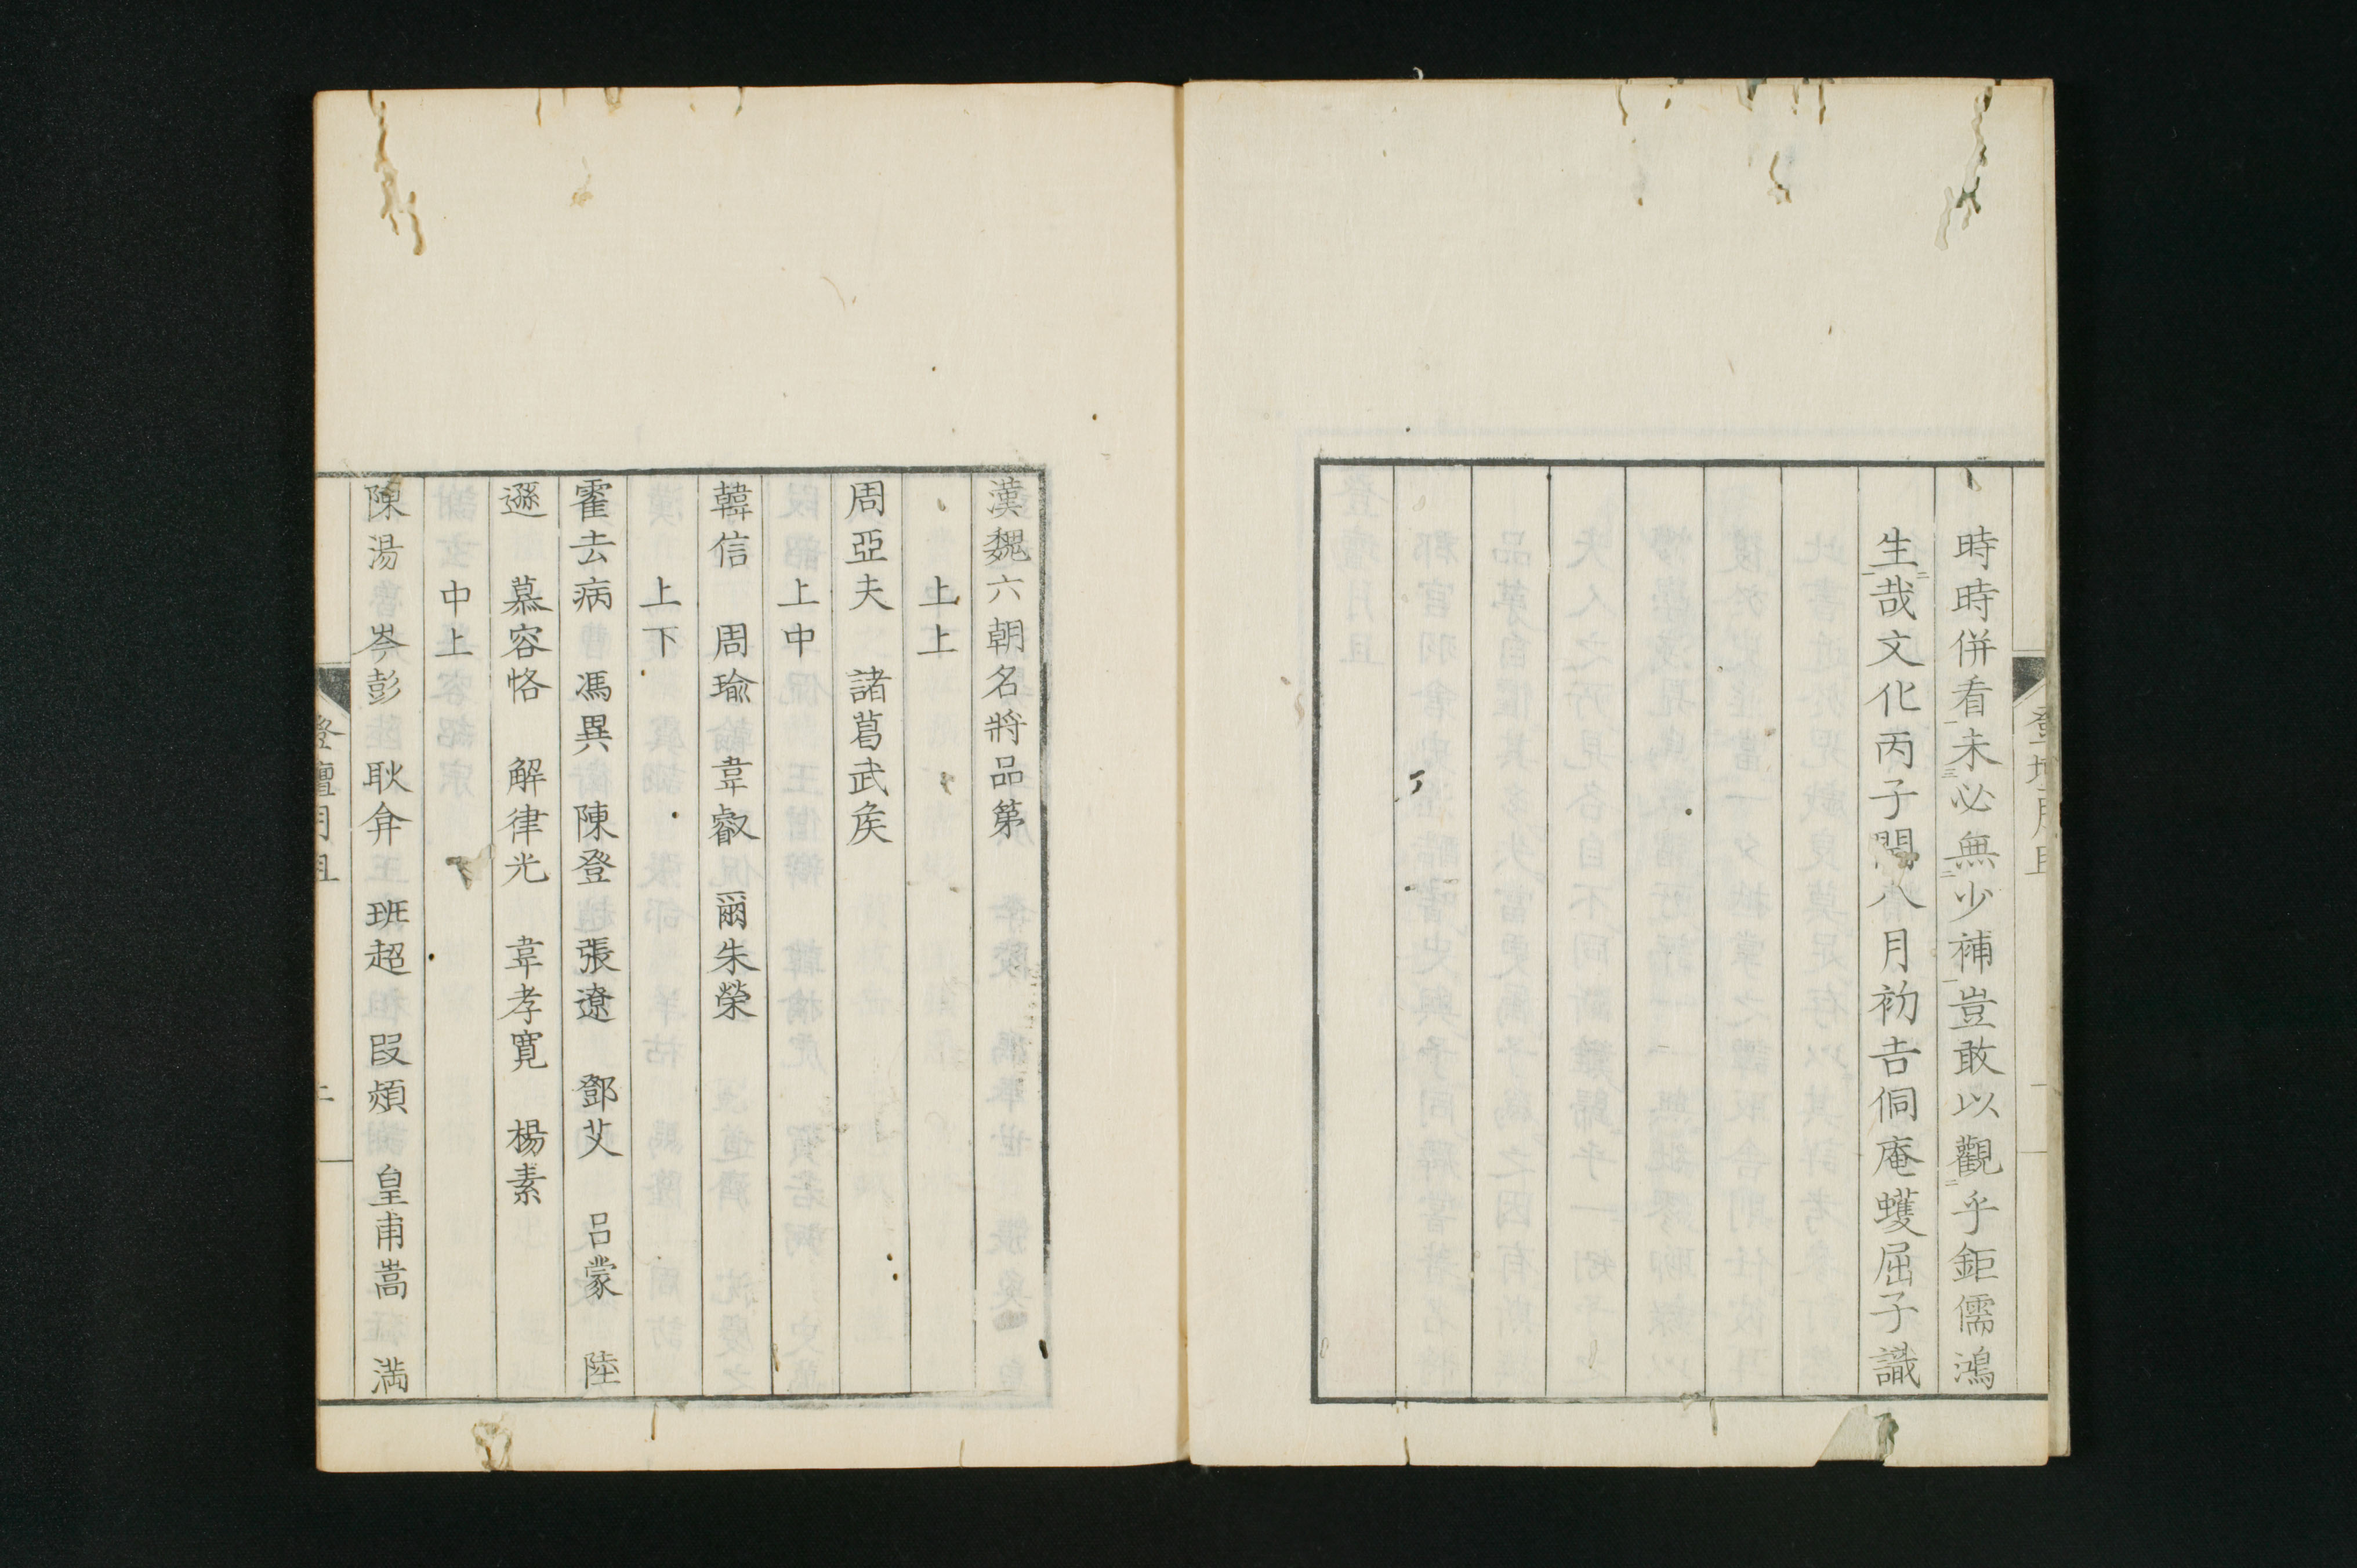 時時併看未必無少補豈敢以觀乎鉅儒鴻
生哉文化丙子閏八月初吉侗庵蠖屈子識
漢魏六朝名將品第
上上
周亞夫　諸葛武矦
上中
韓信　周瑜　韋叡　爾朱榮
上下
霍去病　馮異　陳登　張遼　鄧艾　呂蒙　陸
遜　慕容恪　解律光　韋孝寬　楊素
中上
陳湯　岑彭　耿弇　班超　段熲　皇甫嵩　満
登壇月旦